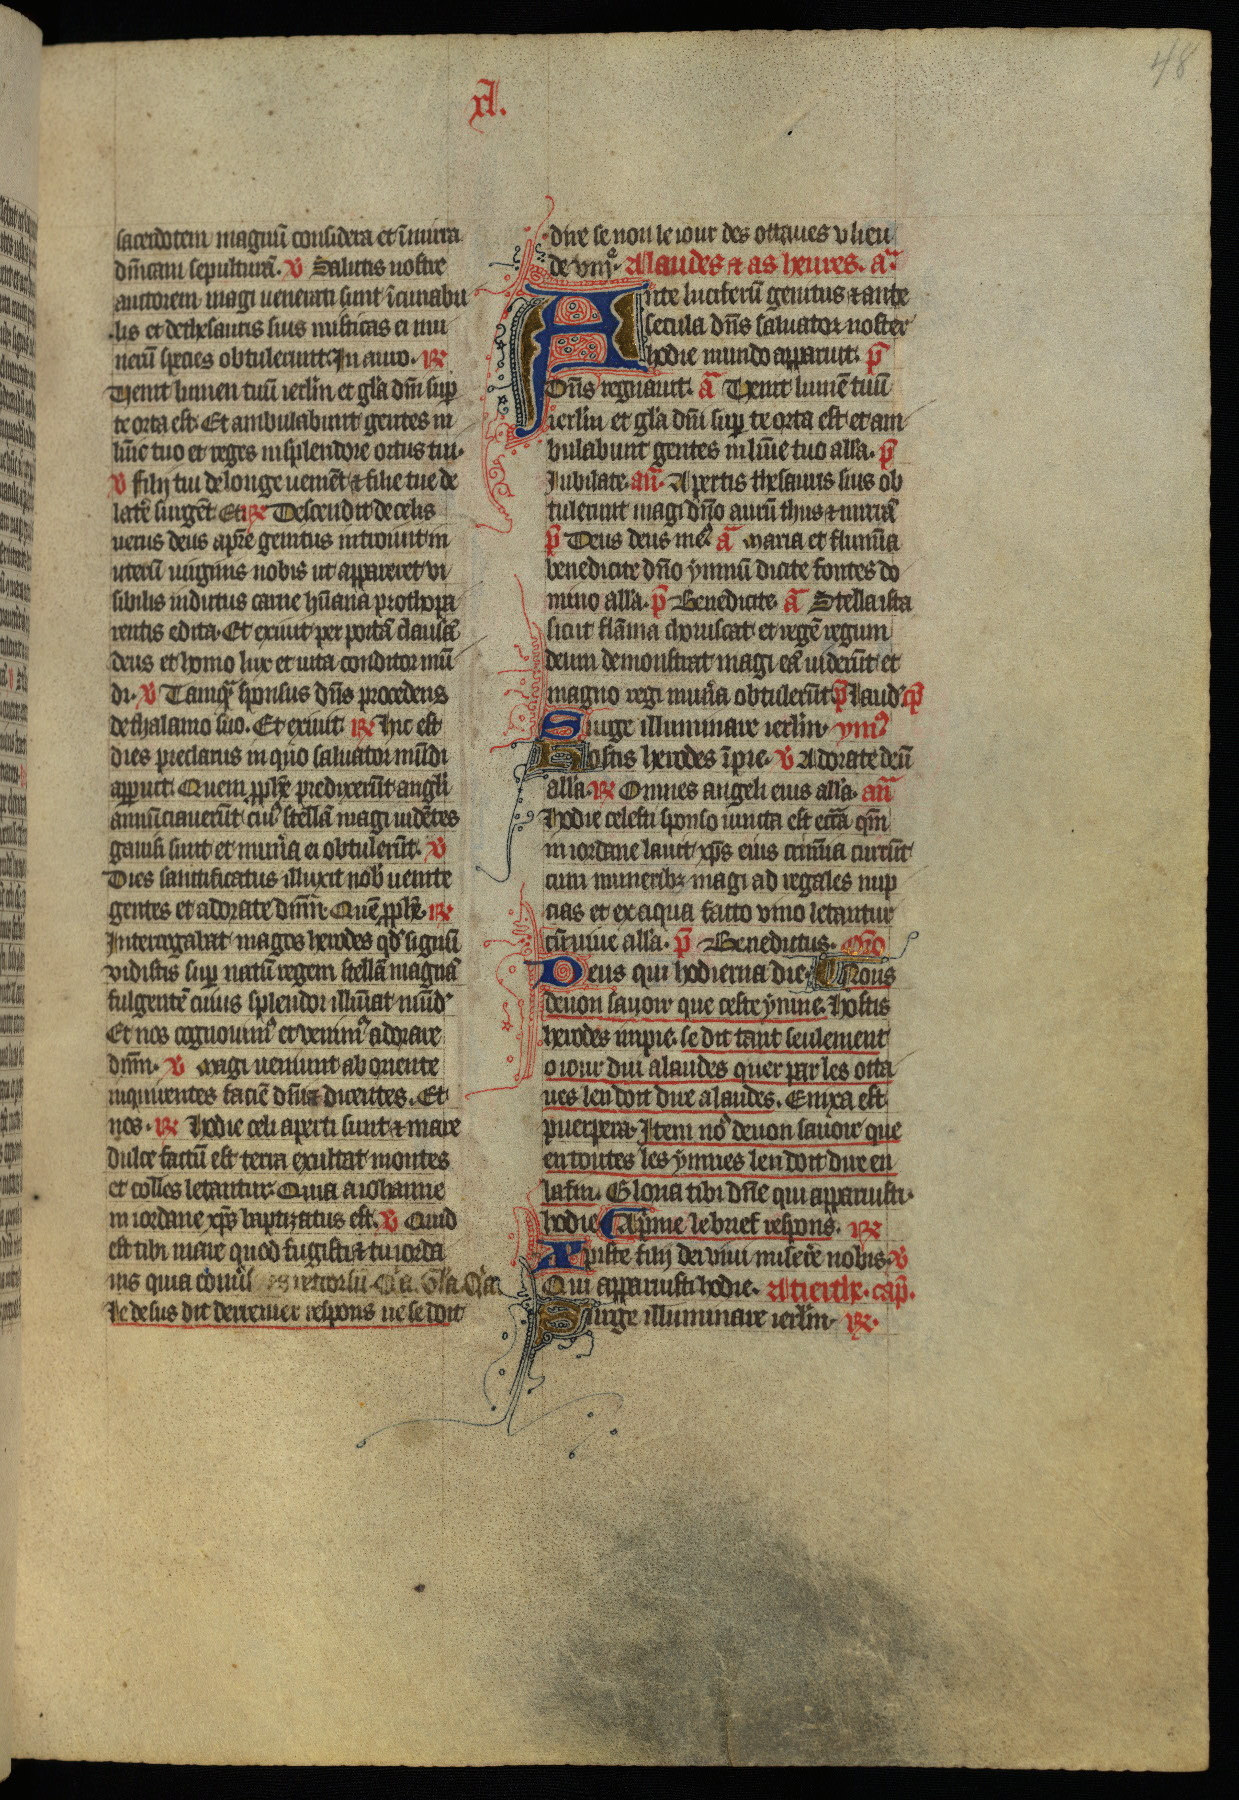 48
xl.
sacerdotem magnū considera et ī mirra
dn̄icam sepulturā. v Salutis nostre
auctorem magi uenerati sunt ī cunabu
lis et de thesauris suis misticas ei mu
nerū species obtulerunt. In auro. R
Uenit lumen tuū ierl̄m et gl̄a dn̄i sup
te orta est. Et ambulabunt gentes in
lūīe tuo et reges in splendore ortus tui.
v Filij tui de longe ueniēt & filie tue de
latē surgēt. Et R Descendit de celis
uerus deus a pr̄e genitus introiuit in
uterū uirginis nobis ut appareret vi
sibilis indutus carne hūana prothopa
rentis edita. Et exiuit per portā clausā
deus et homo lux et uita conditor mū
di. v Tamqͣ sponsus dn̄s procedens
de thalamo suo. Et exiuit. R Hic est
dies preclarus in quo saluator mūdi
apparuit. Quem ꝓph̄e predixerūt angl̄i
annūciauerūt cui᷒ stellā magi uidētes
gauisi sunt et mun̄a ei obtulerūt. v
Dies santificatus illuxit nob̄ uenite
gentes et adorate dn̄m. Quē ꝓph̄e. R
Interrogabat magos herodes qd̄ signū
vidistis sup̄ natū regem stellā magnā
fulgentē cuius splendor illūīat mūd᷒
Et nos cognouim᷒ et venim᷒ adorare
dn̄m. v Magi ueniunt ab oriente
inquirentes faciē dn̄i & dicentes. Et
nos. R Hodie celi aperti sunt & mare
dulce factū est terra exultat montes
et colles letantur. Quia a iohanne
in iordane xp̄s baptizatus est. v Quid
est tibi mare quod fugisti & tu iorda
nis quia cōuersus es retrorsū. Q̄a. Gl̄a. Q̄a
Le desus dit derrenier respons ne se doit
dire se non le iour des ottaues v lieu
de viijͤ. A laudes & as heures. añ
Ante luciferū genitus & ante
secula dn̄s saluator noster
hodie mundo apparuit. p̄
Dn̄s regnauit. ā Uenit lumē tuū
ierl̄m et gl̄a dn̄i sup̄ te orta est et am
bulabunt gentes in lūīe tuo all̄a. p̄
Jubilate. añ. Apertis thesauris suis ob
tulerunt magi dn̄o aurū thus & mirrā
p̄ Deus deus me᷒ ā Maria et flumīa
benedicite dn̄o ymnū dicite fontes do
mino all̄a. p̄ Benedicite. ā Stella ista
sicut flāma choruscat et regē regum
deum demonstrat magi eā uiderūt et
magno regi mun̄a obtulerūt p̄ Laud᷒ cp̄
Surge illuminare ierl̄m. ym᷒
Hostis herodes īpie. v Adorate deū
all̄a. R Omnes angeli eius all̄a. añ
Hodie celesti sponso iuncta est ecc̄a qm̄
in iordane lauit xp̄s eius crimīa currūt
cum muneribꝫ magi ad regales nup
cias et ex aqua facto vino letantur
cōuiue all̄a. p̄ Benedictus. or̄o
Deus qui hodierna die. Nous
deuon sauoir que ceste ymne. Hostis
herodes impie. se dit tant seulement
o iour dui a laudes quer par les otta
ues len doit dire a laudes. Enixa est
puerpera. Item no᷒ deuon sauoir que
en toutes les ymnes len doit dire en
la fin. Gloria tibi dn̄e qui apparuisti.
hodie A prime le brief respons. R
Xpiste fili dei viui miserē nobis. v
Qui apparuisti hodie. A tierche. cap̄.
Surge illuminare ierl̄m. R.